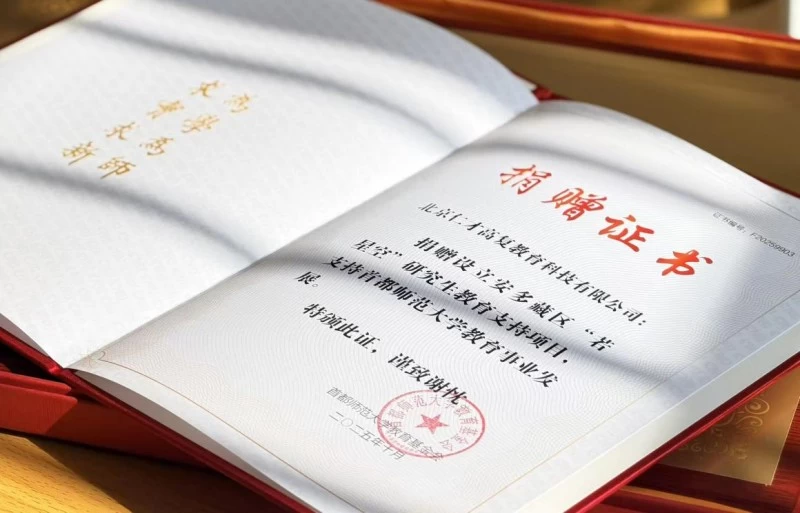 为学为师
求实求新
捐赠证书
证书编号：F20259903
北京仁才高复教育科技有限公司：
捐赠设立安多藏区“若
星空”研究生教育支持项目，
支持首都师范大学教育事业发
展。
特颁此证，谨致谢忱
首都师范大学教育基金会
二〇二五年十月